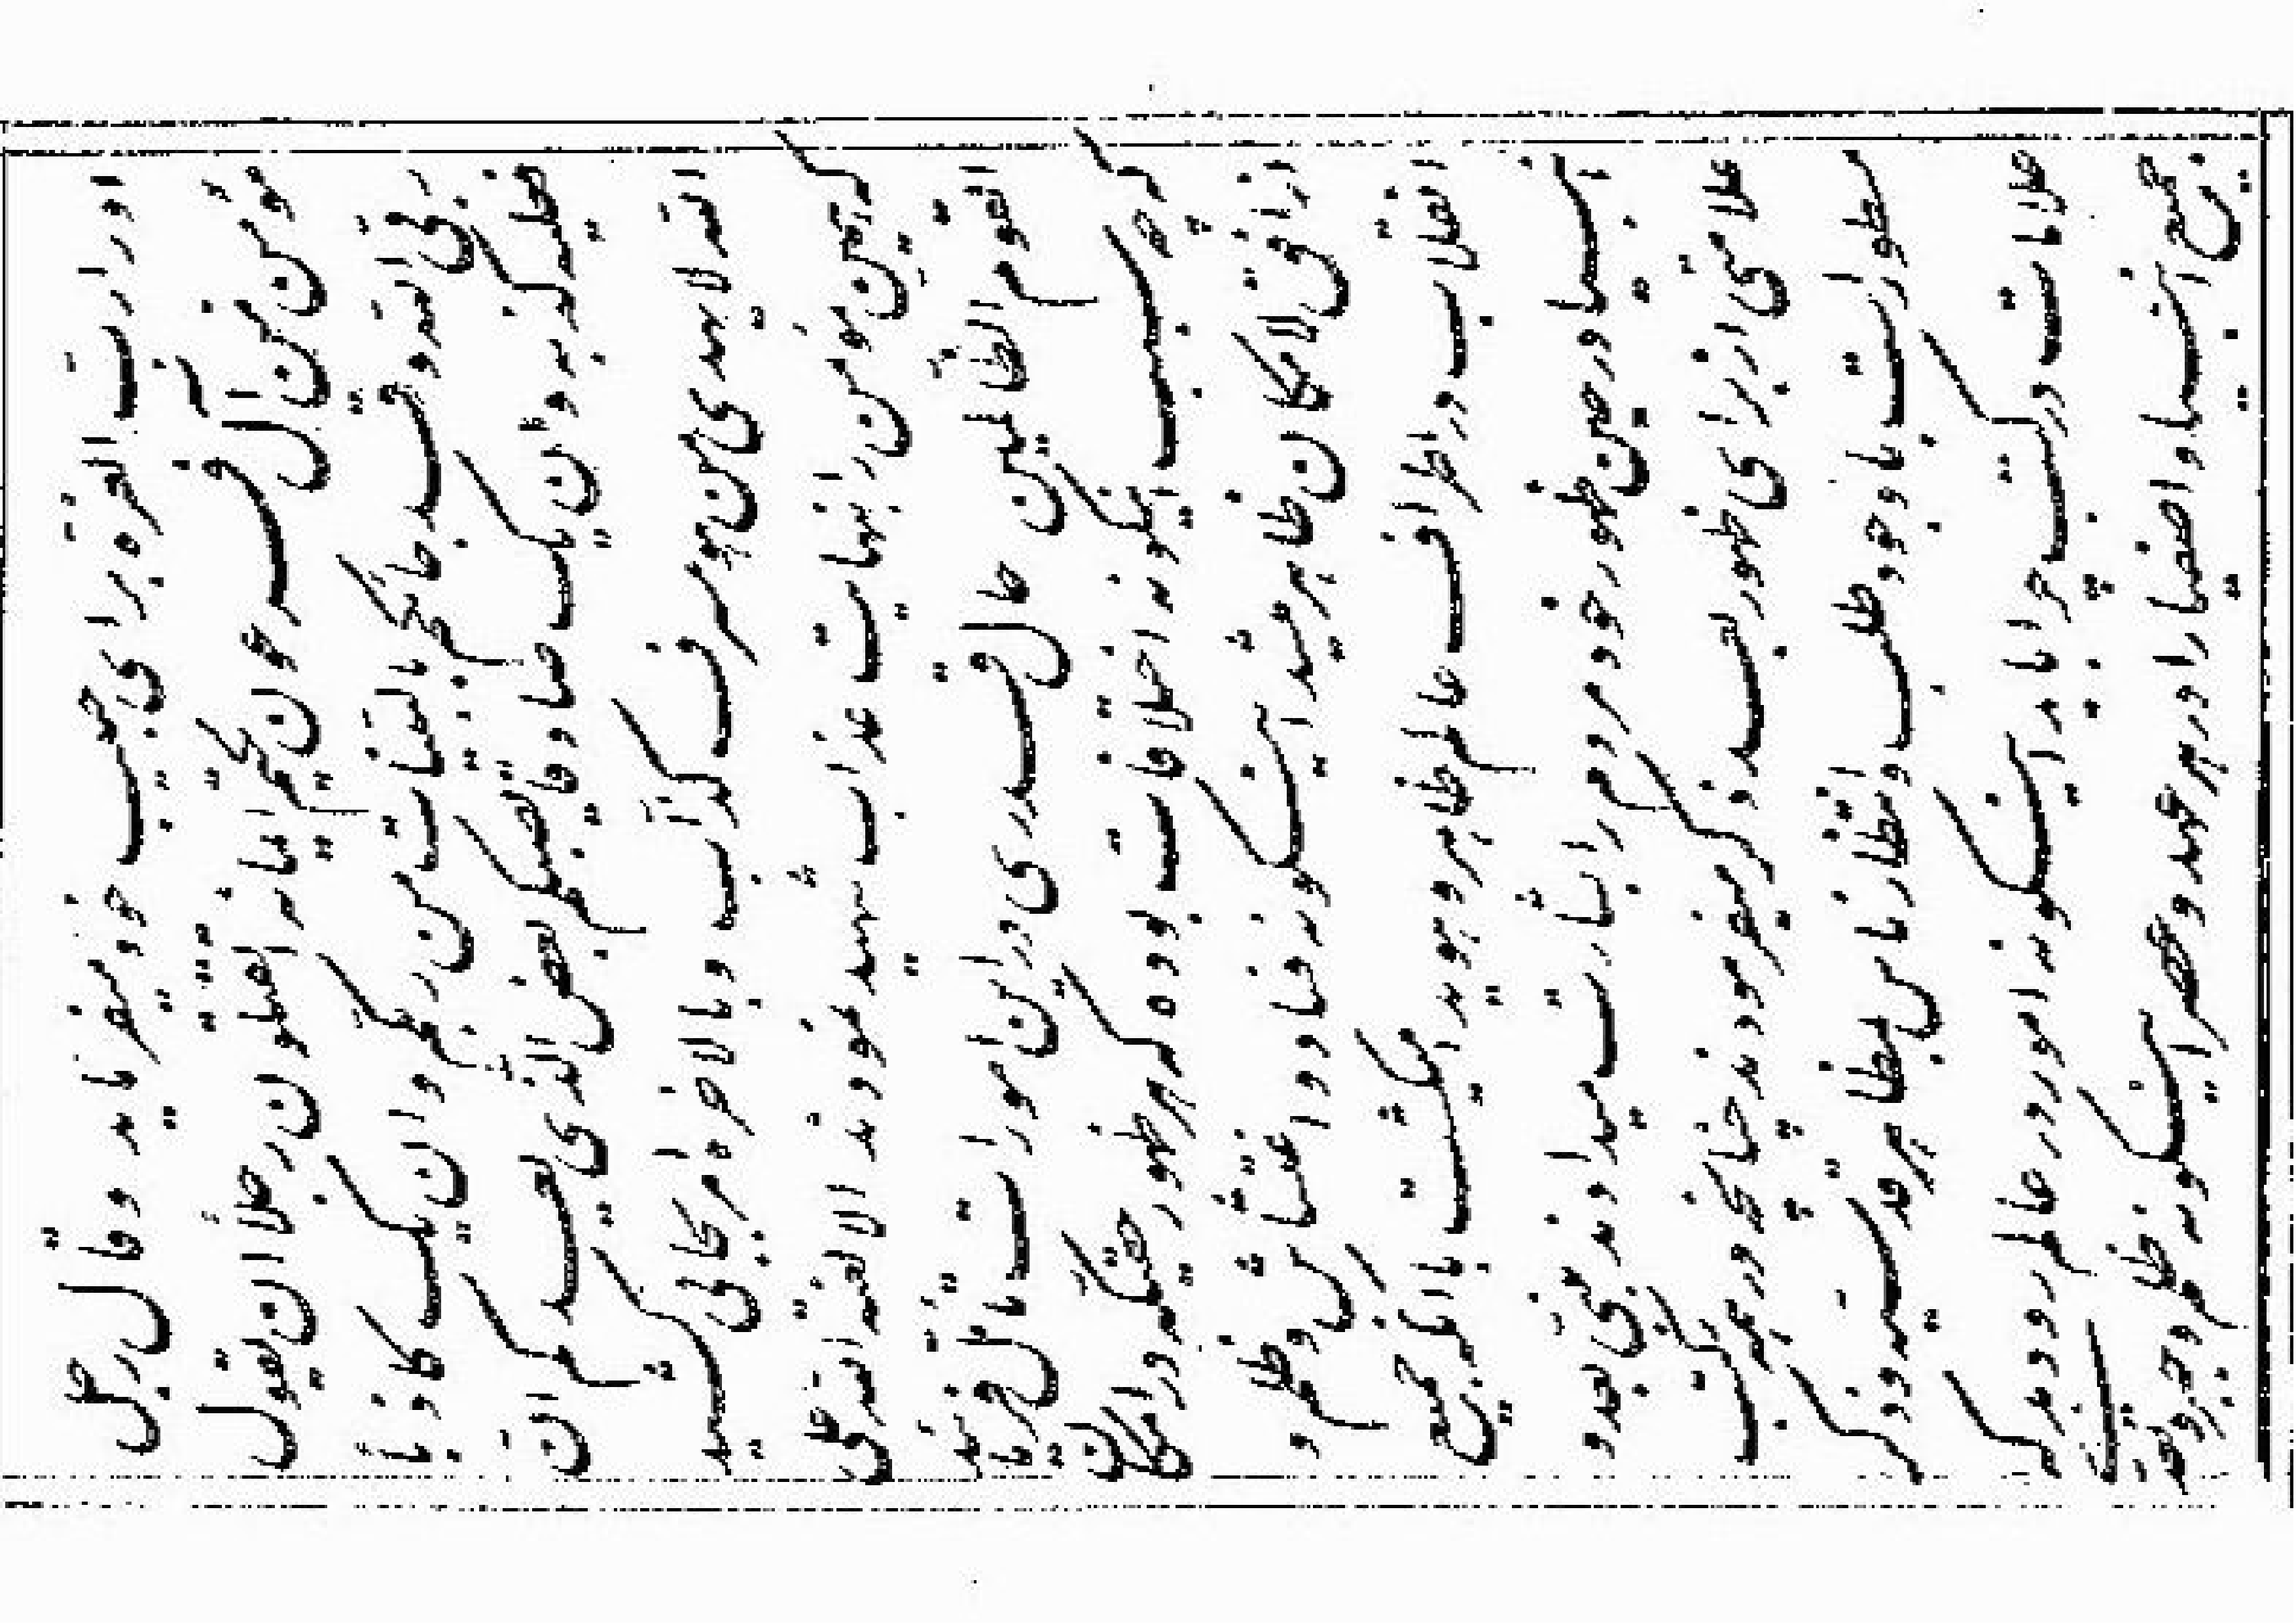 او را رب العزه برای حبیب خود میفرماید و قال رجل
مؤمن من آل فرعون یکتم ایمانه اتقتلون رجلا ان یقول
ربی الله و قد جائکم بالبینات من ربکم و ان یک کاذبا
فعلیه کذبه و ان یک صادقا یصبکم بعض الذی یعدکم ان
الله لا یهدی من هو مسرف کذاب و بالاخره امر بجائی کشید
که همین مؤمن را بنهایت عذاب شهید نمودند الا لعنة الله علی
القوم الظالمین حال قدری در این امورات تأمل فرمائید
که چه سبب اینگونه اختلافات بوده که هر ظهور حقی که در امکان
از افق لامکان ظاهر میشد اینگونه فساد و اغتشاش و ظلم و
انقلاب در اطراف عالم ظاهر و هویدا میگشت با اینکه جمیع
انبیا در حین ظهور خود مردم را بشارت میدادند بنبی بعد و
علامتی از برای ظهور بعد ذکر میفرمودند چنانچه در همه کتب
مسطور است با وجود طلب و انتظار ناس بمظاهر قدسیه و ذکر
علامات در کتب چرا باید اینگونه امور در عالم رو دهد که
جمیع انبیا و اصفیا را در هر عهد و عصر اینگونه ظلم و جبر و تعدی